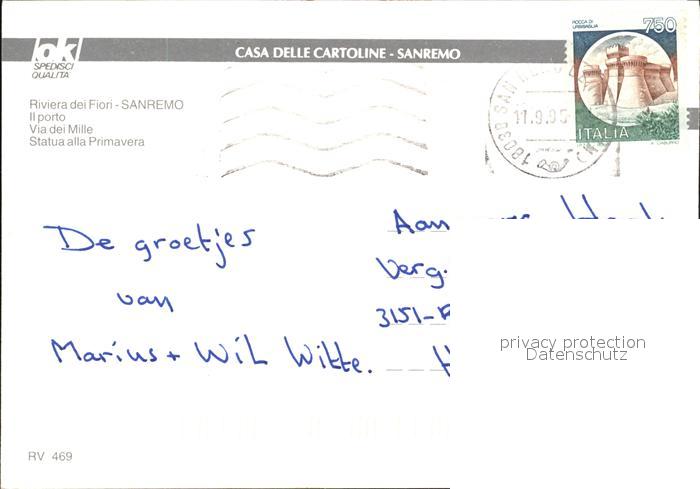 ok
SPEDISCI
QUALITA
CASA DELLE CARTOLINE - SANREMO
ROCCA DI
URBISAGLIA
750
ITALIA
Riviera dei Fiori - SANREMO
Il porto
Via dei Mille
Statua alla Primavera
18038 SAN
11.9.95
De groetjes
van
Marius + Wil Witte.
Aan
Verg.
3151-
H
privacy protection
Datenschutz
RV 469